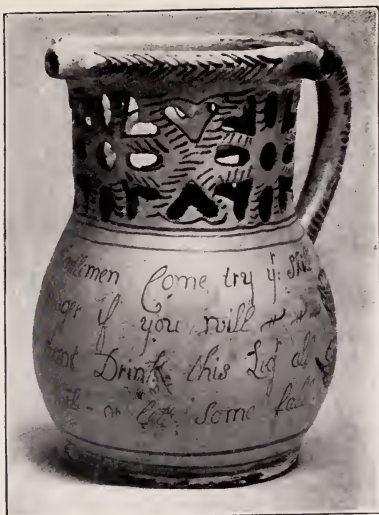 ntlemen Come try yr Skill
ager If you will
ont Drink this Liqr all
or lett some fall